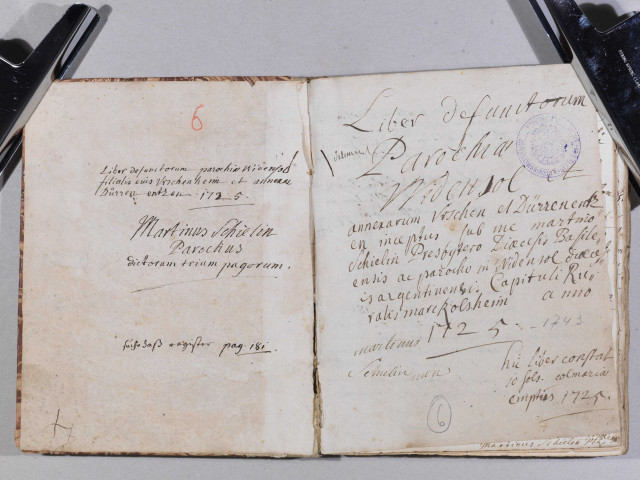 6
Liber defunctorum parochiæ Widensol
filialis eius Urschenheim et annexæ
Dürrenentzen 1725.
Martinus Schielin
Parochus
dictorum trium pagorum.
register pag 181.
Liber defunctorum
Parochiæ
Widensol et
annexarum Urschen et Dürrenentz
en inceptus sub me martino
Schielin Presbytero Diœcesis Basile
ensis ac parocho in Widensol diœce
sis argentinensis Capituli Ru
ralis marckolsheim anno
1725 - 1743
martinus
Schielin
hic liber constat
10 sols. colmariæ
emptus 1725.
6
Martinus Schielin